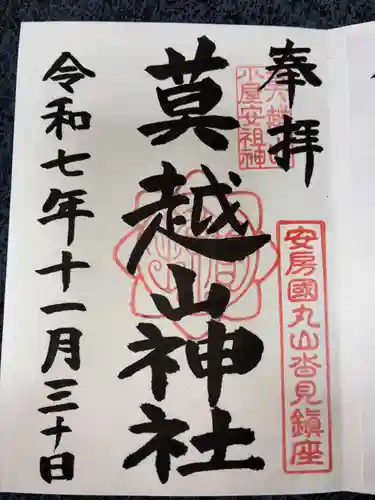 奉拝
莫越山神社
令和七年十一月三十日
安房國丸山沓見鎮座